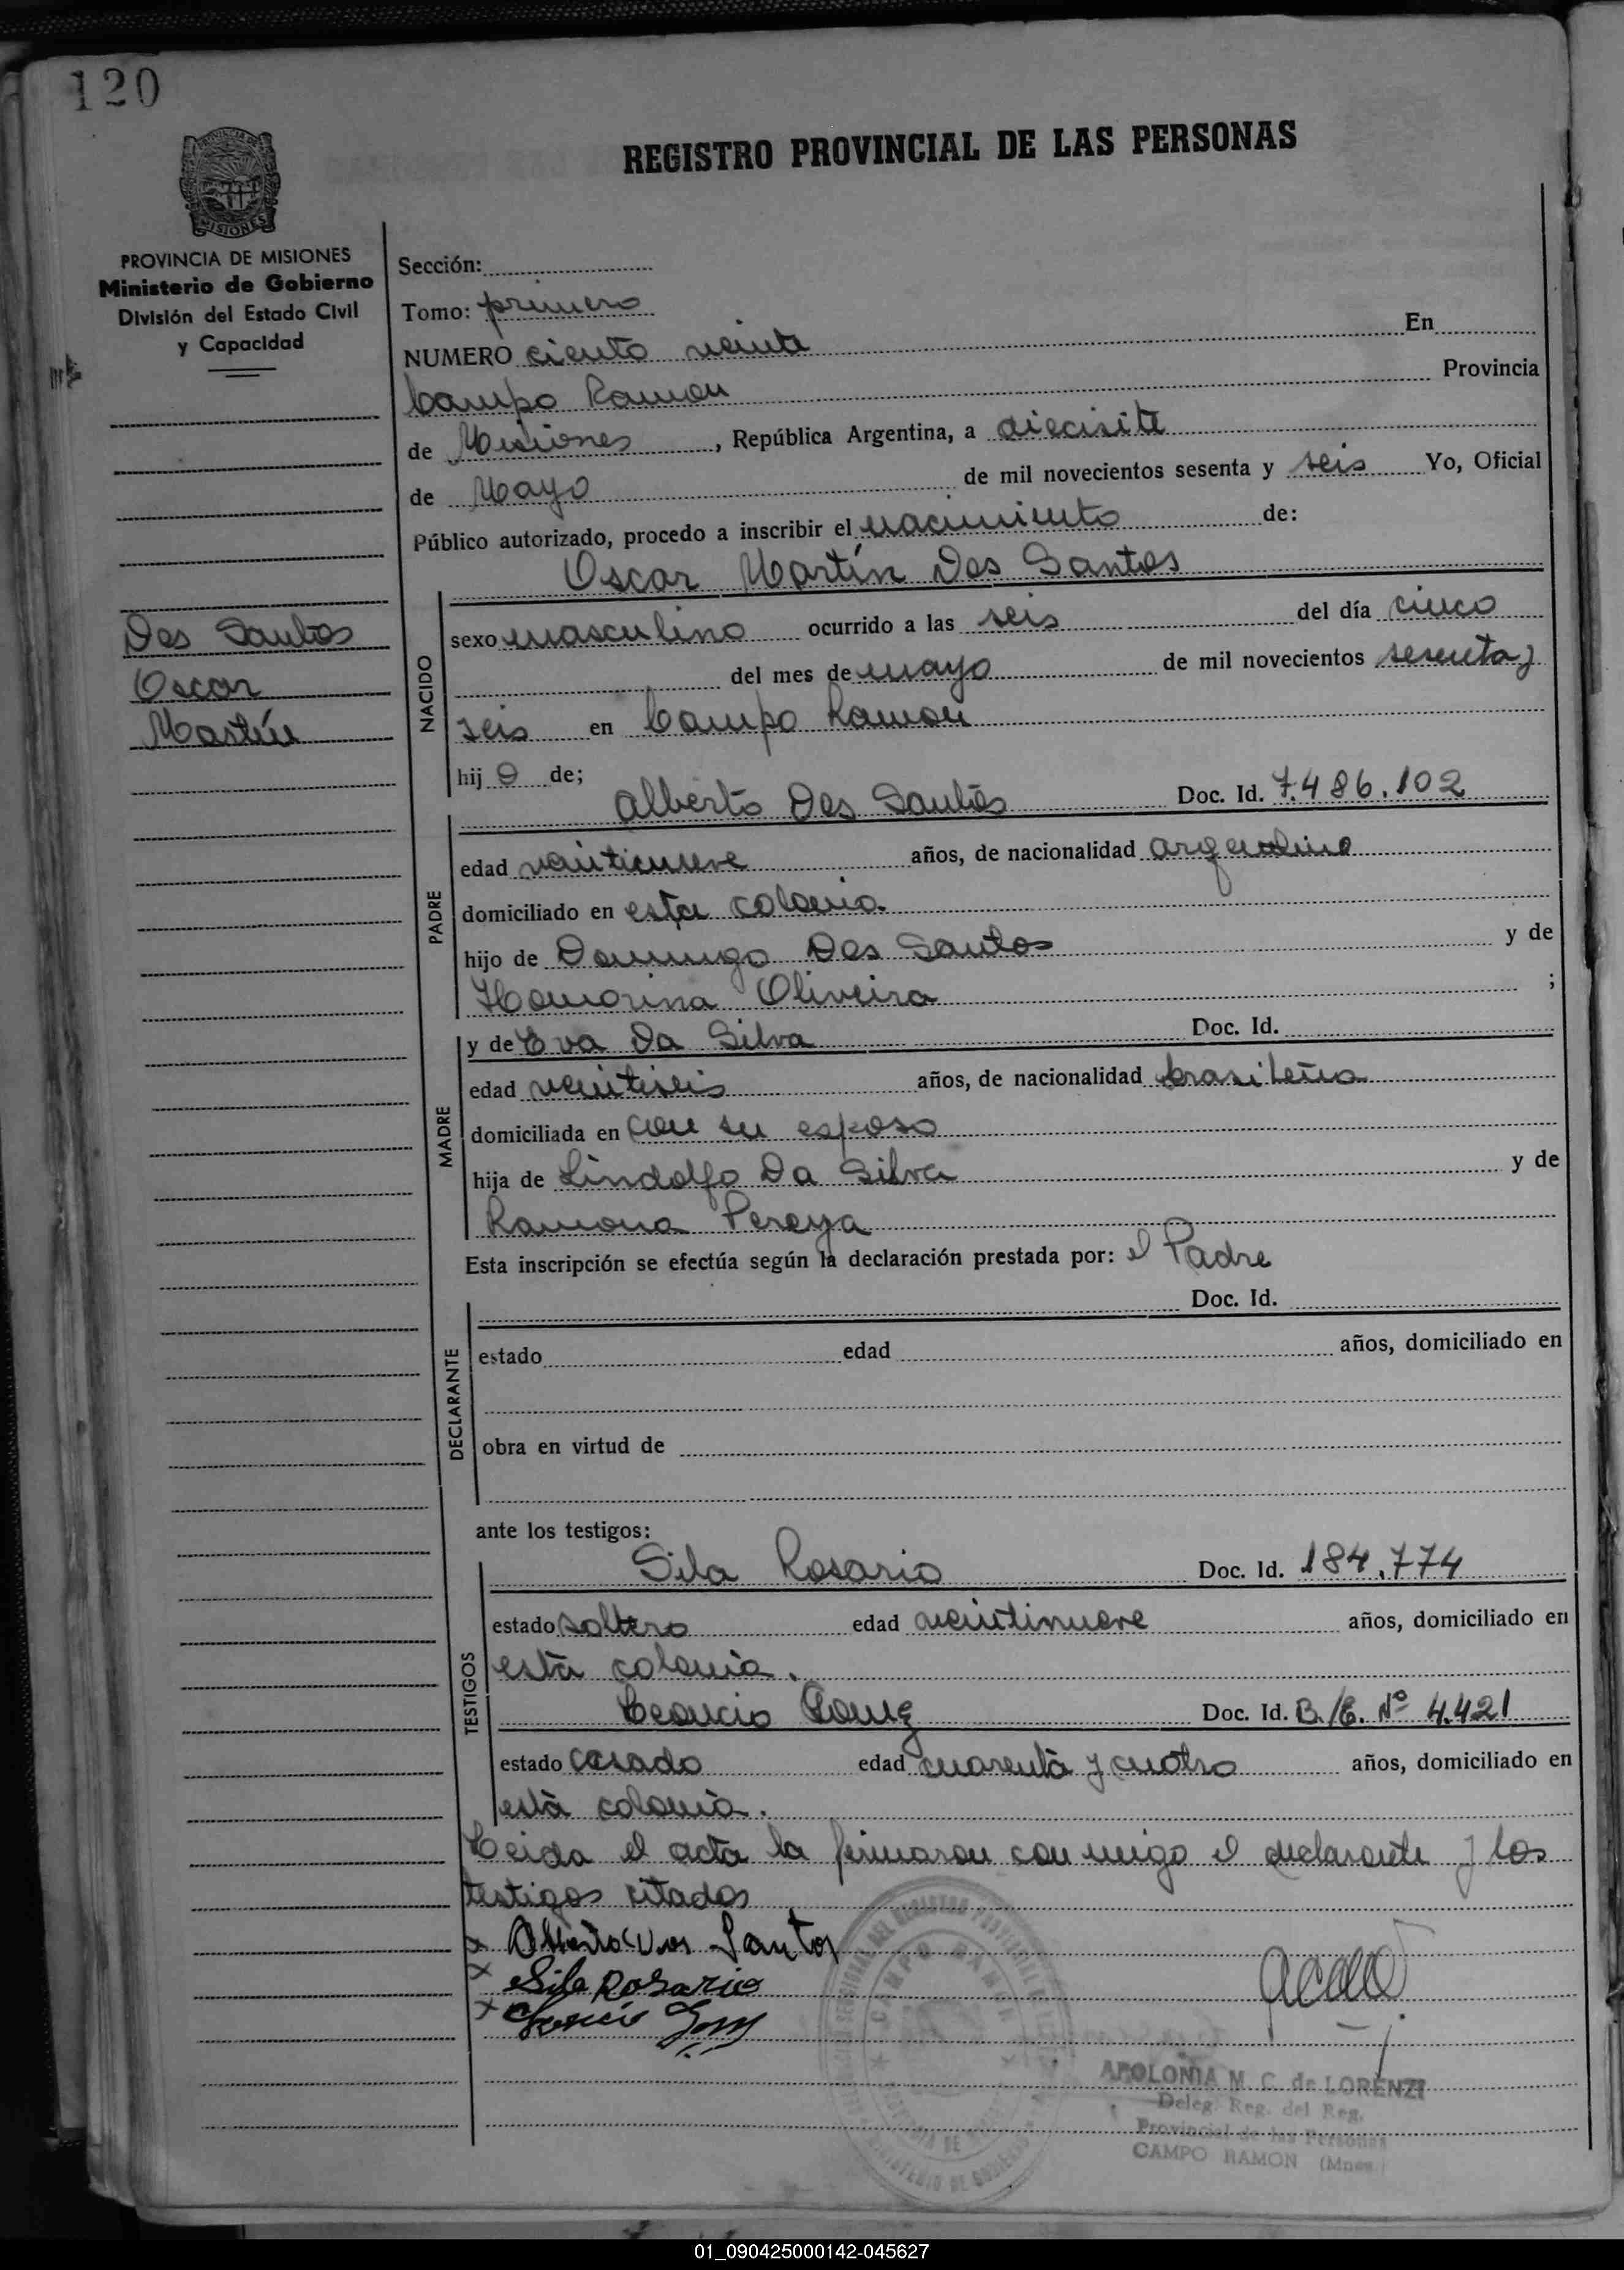 120
REGISTRO PROVINCIAL DE LAS PERSONAS
PROVINCIA DE MISIONES
Ministerio de Gobierno
División del Estado Civil
y Capacidad
Sección:
Tomo: primero
NUMERO ciento veinte En
Campo Ramon Provincia
de Misiones, República Argentina, a diecisite
de Mayo de mil novecientos sesenta y seis Yo, Oficial
Público autorizado, procedo a inscribir el nacimiento de:
Oscar Martín Dos Santos
Dos Santos
Oscar
Martín
NACIDO
sexo masculino ocurrido a las seis del día cinco
del mes de mayo de mil novecientos sesenta y
seis en Campo Ramon
hijo de;
Alberto Dos Santos Doc. Id. 7.486.102
PADRE
edad veintinueve años, de nacionalidad argentino
domiciliado en esta colonia
hijo de Domingo Dos Santos y de
Oliveira ;
MADRE
y de Eva Da Silva Doc. Id.
edad veintiseis años, de nacionalidad brasileña
domiciliada en con su esposo
hija de Lindolfo Da Silva y de
Ramona Pereya
Esta inscripción se efectúa según la declaración prestada por: el Padre
DECLARANTE
Doc. Id.
estado edad años, domiciliado en
obra en virtud de
ante los testigos:
TESTIGOS
Sila Rosario Doc. Id. 184.774
estado soltero edad veintinueve años, domiciliado en
esta colonia.
Doc. Id. B./E. Nº 4.421
estado casado edad cuarenta y cuatro años, domiciliado en
esta colonia.
Leida el acta la firmaron conmigo el declarante y los
testigos citados
x Alberto Dos Santos
x Sila Rosario
x
CAMPO RAMON
APOLONIA M. C. de LORENZI
Deleg. Reg. del Reg.
Provincial de las Personas
CAMPO RAMON (Mnes.)
01_090425000142-045627